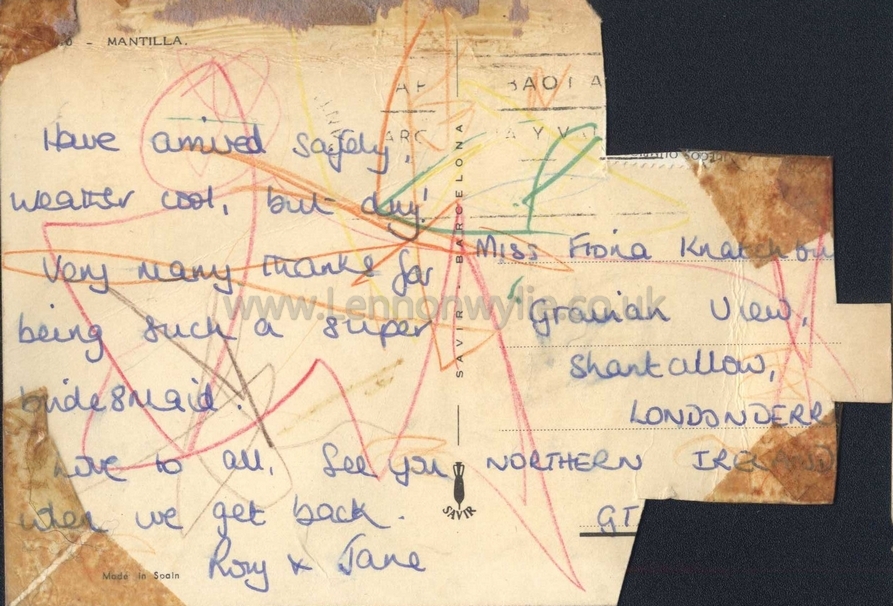 - MANTILLA.
Have arrived safely,
weather cool, but dry!
Very many thanks for
being such a super
bridesmaid.
Love to all. See you
when we get back.
Rory & Jane
Made in Spain
SAVIR - BARCELONA
SAVIR
Miss Fiona Knatchbu
Granian View,
Shantallow,
LONDONDERR
NORTHERN IRELAND
GT
www.Lennonwylie.co.uk